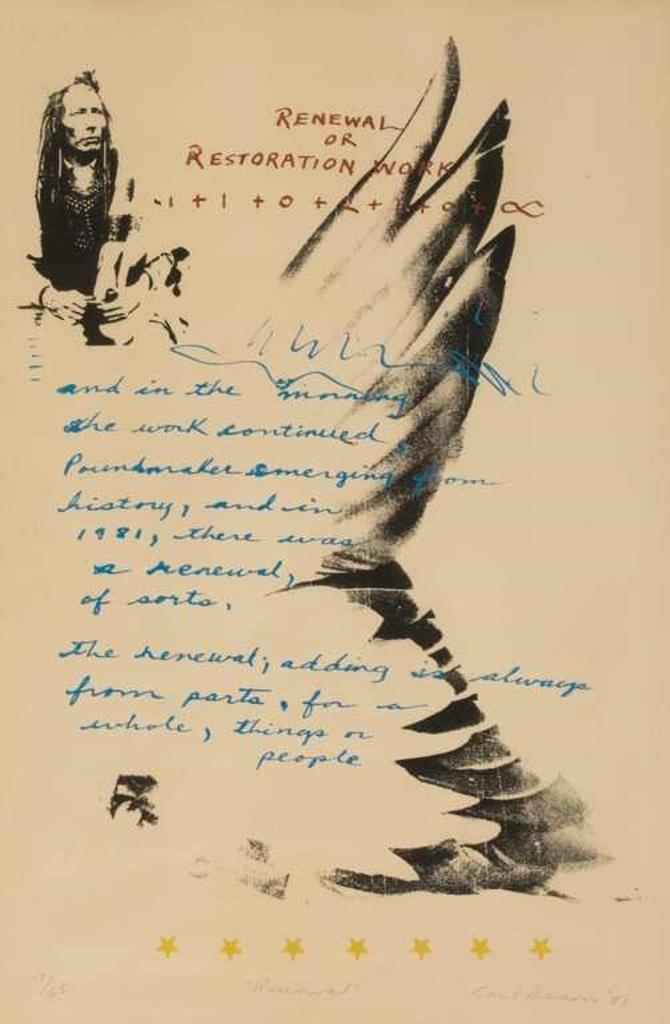 RENEWAL
OR
RESTORATION WORK
1 + 1 + 0 + 2 + 1 + 0 + ∞
and in the morning
the work continued,
Poundmaker emerging from
history, and in
1981, there was
a renewal,
of sorts.
the renewal; adding is always
from parts, for a
whole, things or
people
/65 "Renewal" '81